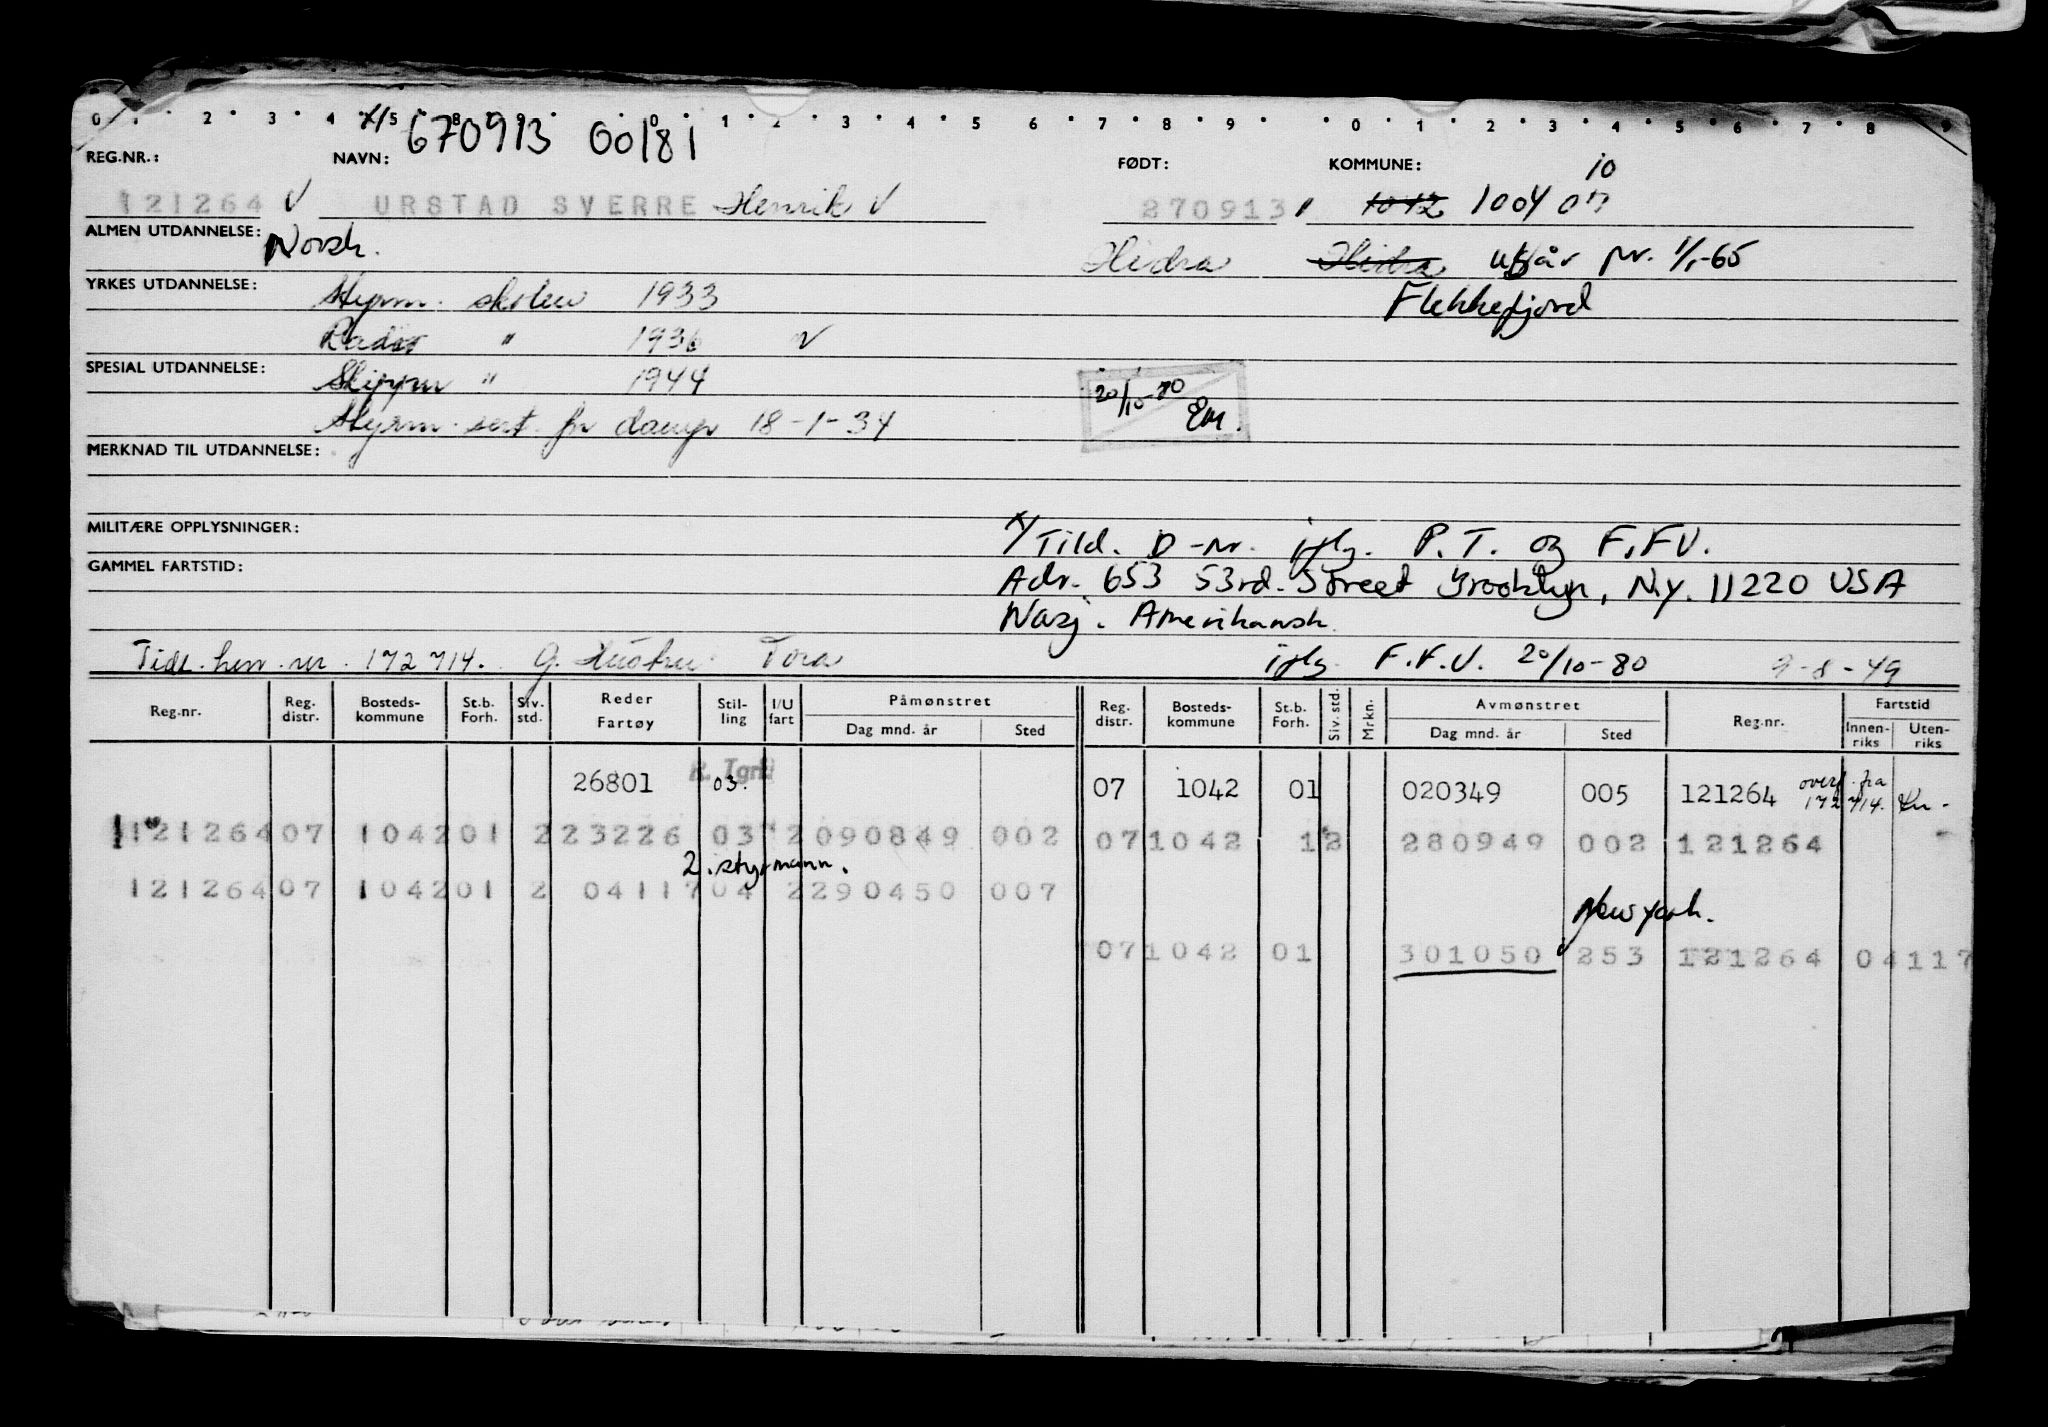 x/ 670913 00181
REG.NR.: NAVN: FØDT: KOMMUNE: 10
121264 V URSTAD SVERRE Henrik V 270913 1042 1004
ALMEN UTDANNELSE: Norsk. Hidra Hidra utgår pr. 1/1-65
YRKES UTDANNELSE: Styrm. skolen 1933 Flekkefjord
Radio " 1936 V
SPESIAL UTDANNELSE: Skipper " 1944 20/10-80 EM.
Styrm. sert. for damp 18-1-34
MERKNAD TIL UTDANNELSE:
MILITÆRE OPPLYSNINGER: x/ Tild. D-nr. iflg. P.T. og F.F.V.
GAMMEL FARTSTID: Adr. 653 53rd. Street Brooklyn, N.y. 11220 USA
Nasj. Amerikansk
Tidl. hen. nr. 172714. G. Hustru Tora iflg. F.F.V. 20/10-80 9-8-49
Reg.nr. Reg. distr. Bosteds-kommune St.b. Forh. Siv. std. Reder Fartøy Stil-ling I/U fart Påmønstret Dag mnd. år Sted Reg. distr. Bosteds-kommune St.b. Forh. Siv. std. Mrkn. Avmønstret Dag mnd. år Sted Reg.nr. Fartstid Innen-riks Uten-riks
26801 03. 07 1042 01 020349 005 121264 overf. fra 172714.
121264 07 1042 01 2 23226 03 2 090849 002 07 1042 1 2 280949 002 121264
2. styrmann.
121264 07 1042 01 2 04117 04 2 290450 007
New york.
07 1042 01 301050 253 121264 04117